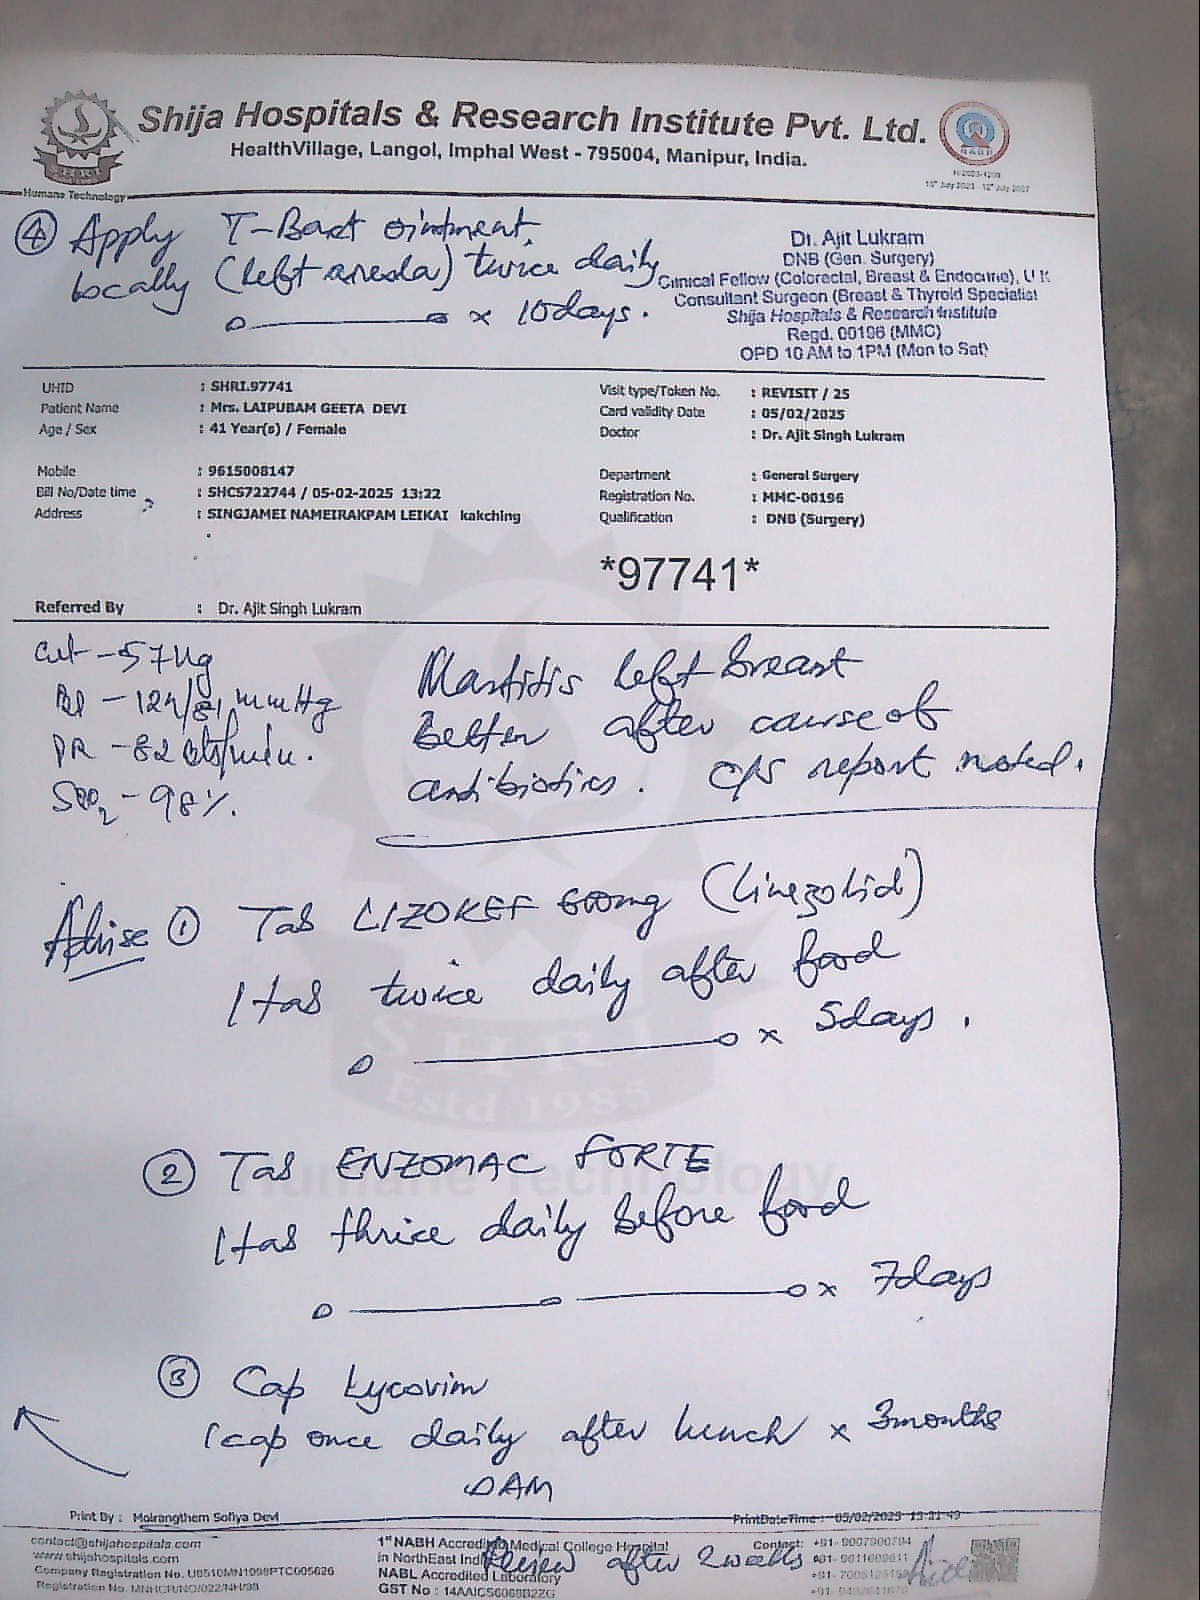 Shija Hospitals & Research Institute Pvt. Ltd.
HealthVillage, Langol, Imphal West - 795004, Manipur, India.
NABH
H-2023-1239
Humane Technology
④ Apply T-Bact ointment
locally (left areola) twice daily
x 10days.
Dr. Ajit Lukram
DNB (Gen. Surgery)
Clinical Fellow (Colorectal, Breast & Endocrine), U K
Consultant Surgeon (Breast & Thyroid Specialist
Shija Hospitals & Research Institute
Regd. 00196 (MMC)
OPD 10 AM to 1PM (Mon to Sat)
UHID : SHRI.97741
Patient Name : Mrs. LAIPUBAM GEETA DEVI
Age / Sex : 41 Year(s) / Female
Mobile : 9615008147
Bill No/Date time : SHCS722744 / 05-02-2025 13:22
Address : SINGJAMEI NAMEIRAKPAM LEIKAI kakching
Visit type/Token No. : REVISIT / 25
Card validity Date : 05/02/2025
Doctor : Dr. Ajit Singh Lukram
Department : General Surgery
Registration No. : MMC-00196
Qualification : DNB (Surgery)
*97741*
Referred By : Dr. Ajit Singh Lukram
Wt - 57 Kg
BP - 124/81 mmHg
PR - 82 bts/min.
SPO2 - 98%.
Mastitis left breast
better after course of
antibiotics. C/S report noted.
Advise ① Tab LIZOKEF 600mg (Linezolid)
1 tab twice daily after food
x 5days.
SHRI
Estd 1985
Humane Technology
② Tab ENZOMAC FORTE
1 tab thrice daily before food
x 7days
③ Cap Lycovim
1 cap once daily after lunch x 3months
Print By : Moirangthem Sofiya Devi
PrintDateTime : 05/02/2025
contact@shijahospitals.com
www.shijahospitals.com
1st NABH Accredited Medical College Hospital
in NorthEast India
NABL Accredited Laboratory
GST No : 14AAICS6068B2ZG
Contact:
Review after 2 weeks